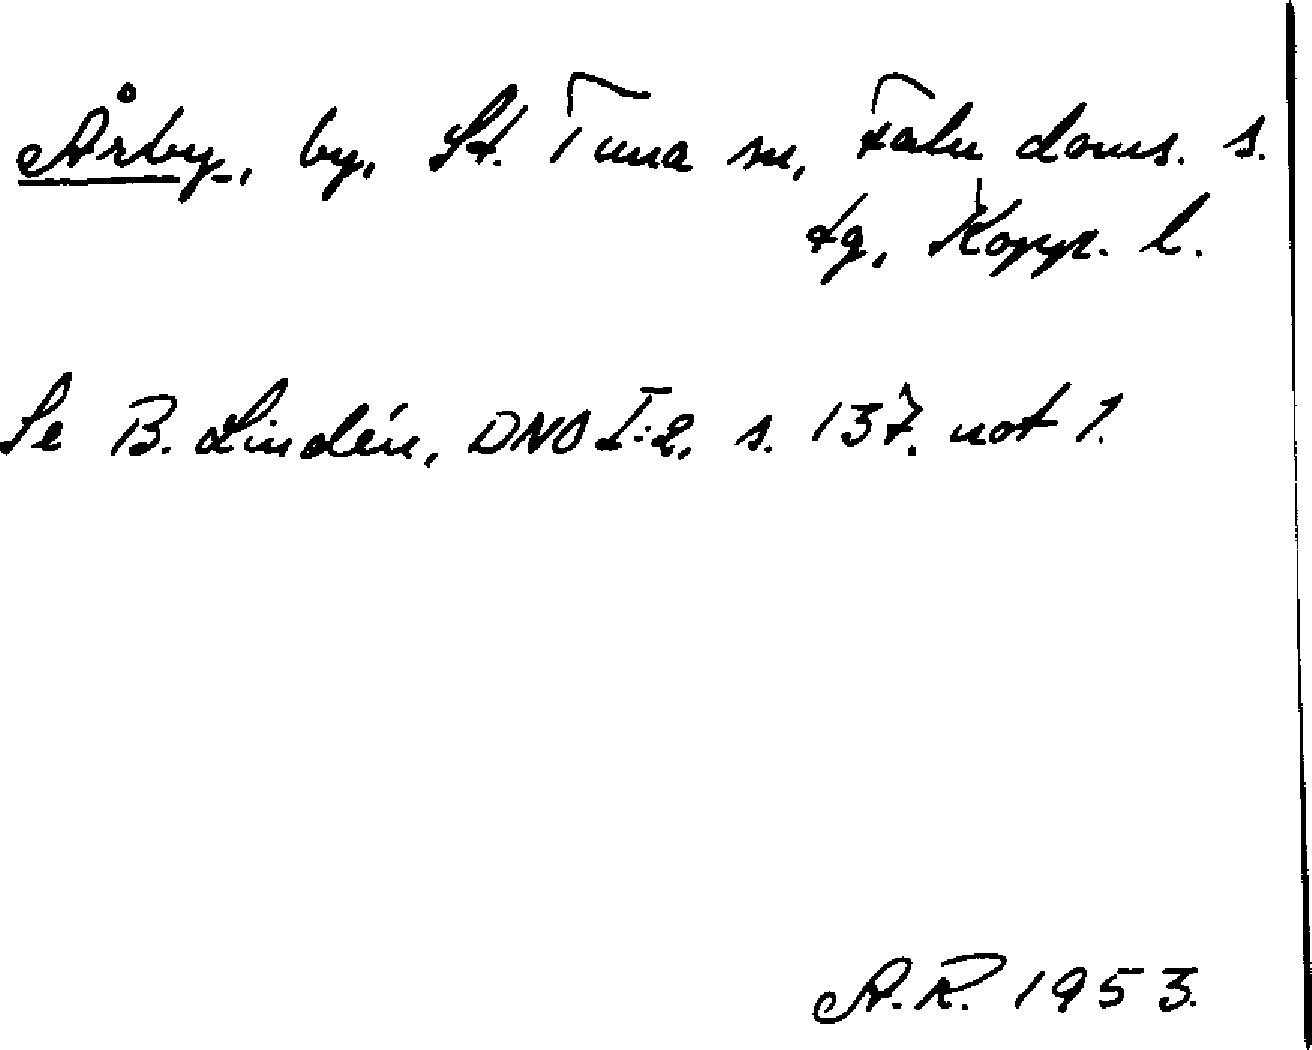 Årby, by, St. Tuna sn, Falu doms. s.
tg, Kopp. l.
Se B. Lindén, DNO I:2, s. 137. not 1.
A.R. 1953.